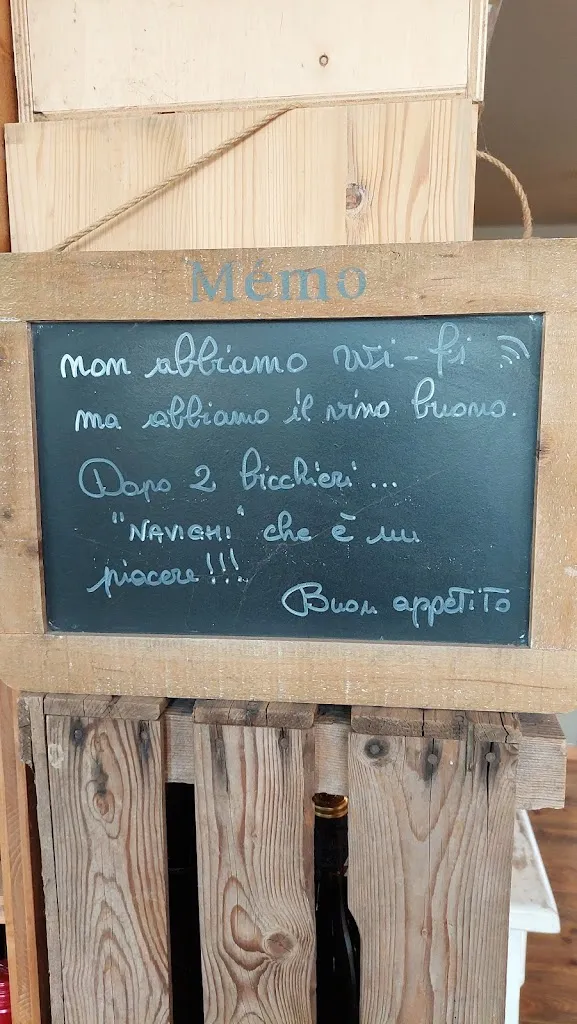 Mémo
non abbiamo wi-fi
ma abbiamo il vino buono.
Dopo 2 bicchieri...
"NAVIGHI" che è un
piacere!!!
Buon appetito